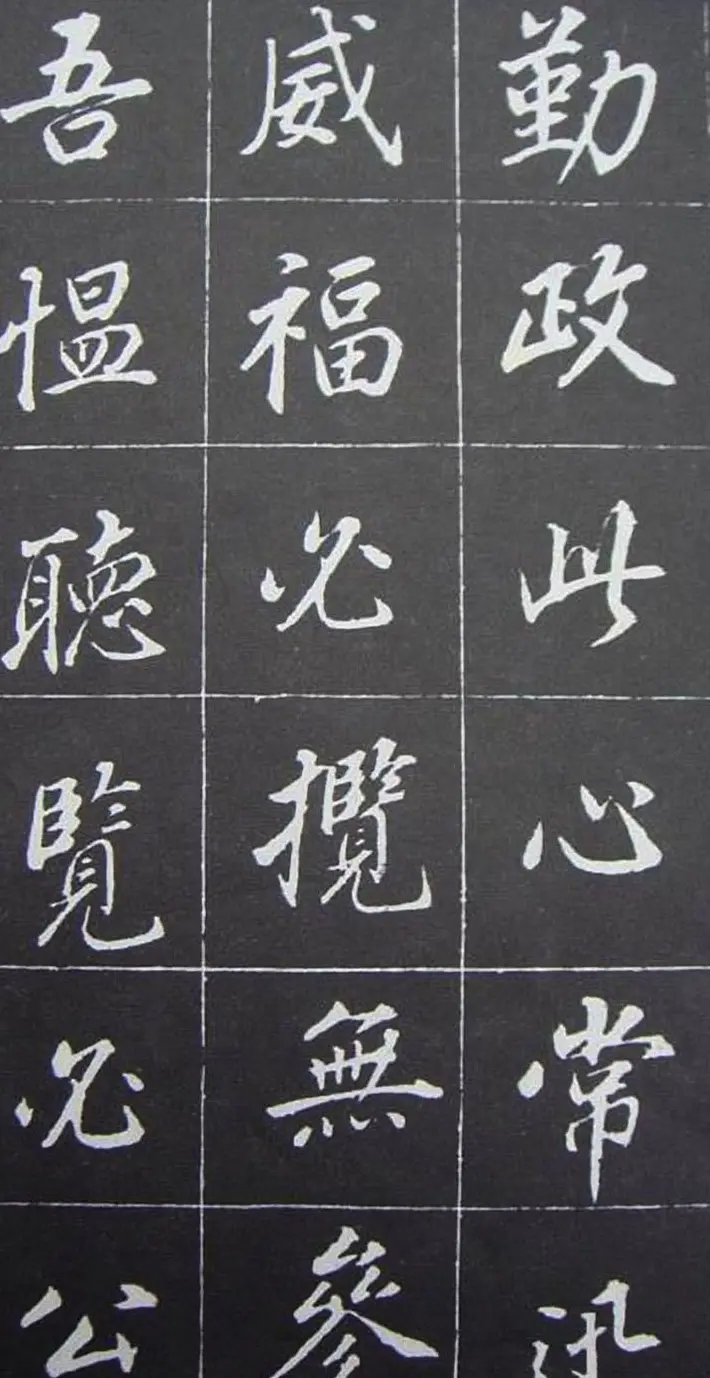 勤政此心常
威福必攬無參
吾愠聽覽必公